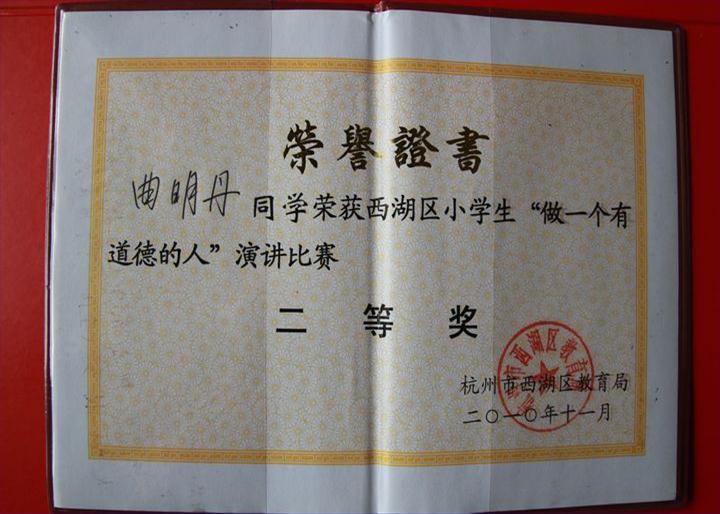 榮譽證書
曲明丹 同学荣获西湖区小学生“做一个有
道德的人”演讲比赛
二等奖
杭州市西湖区教育局
二〇一〇年十一月